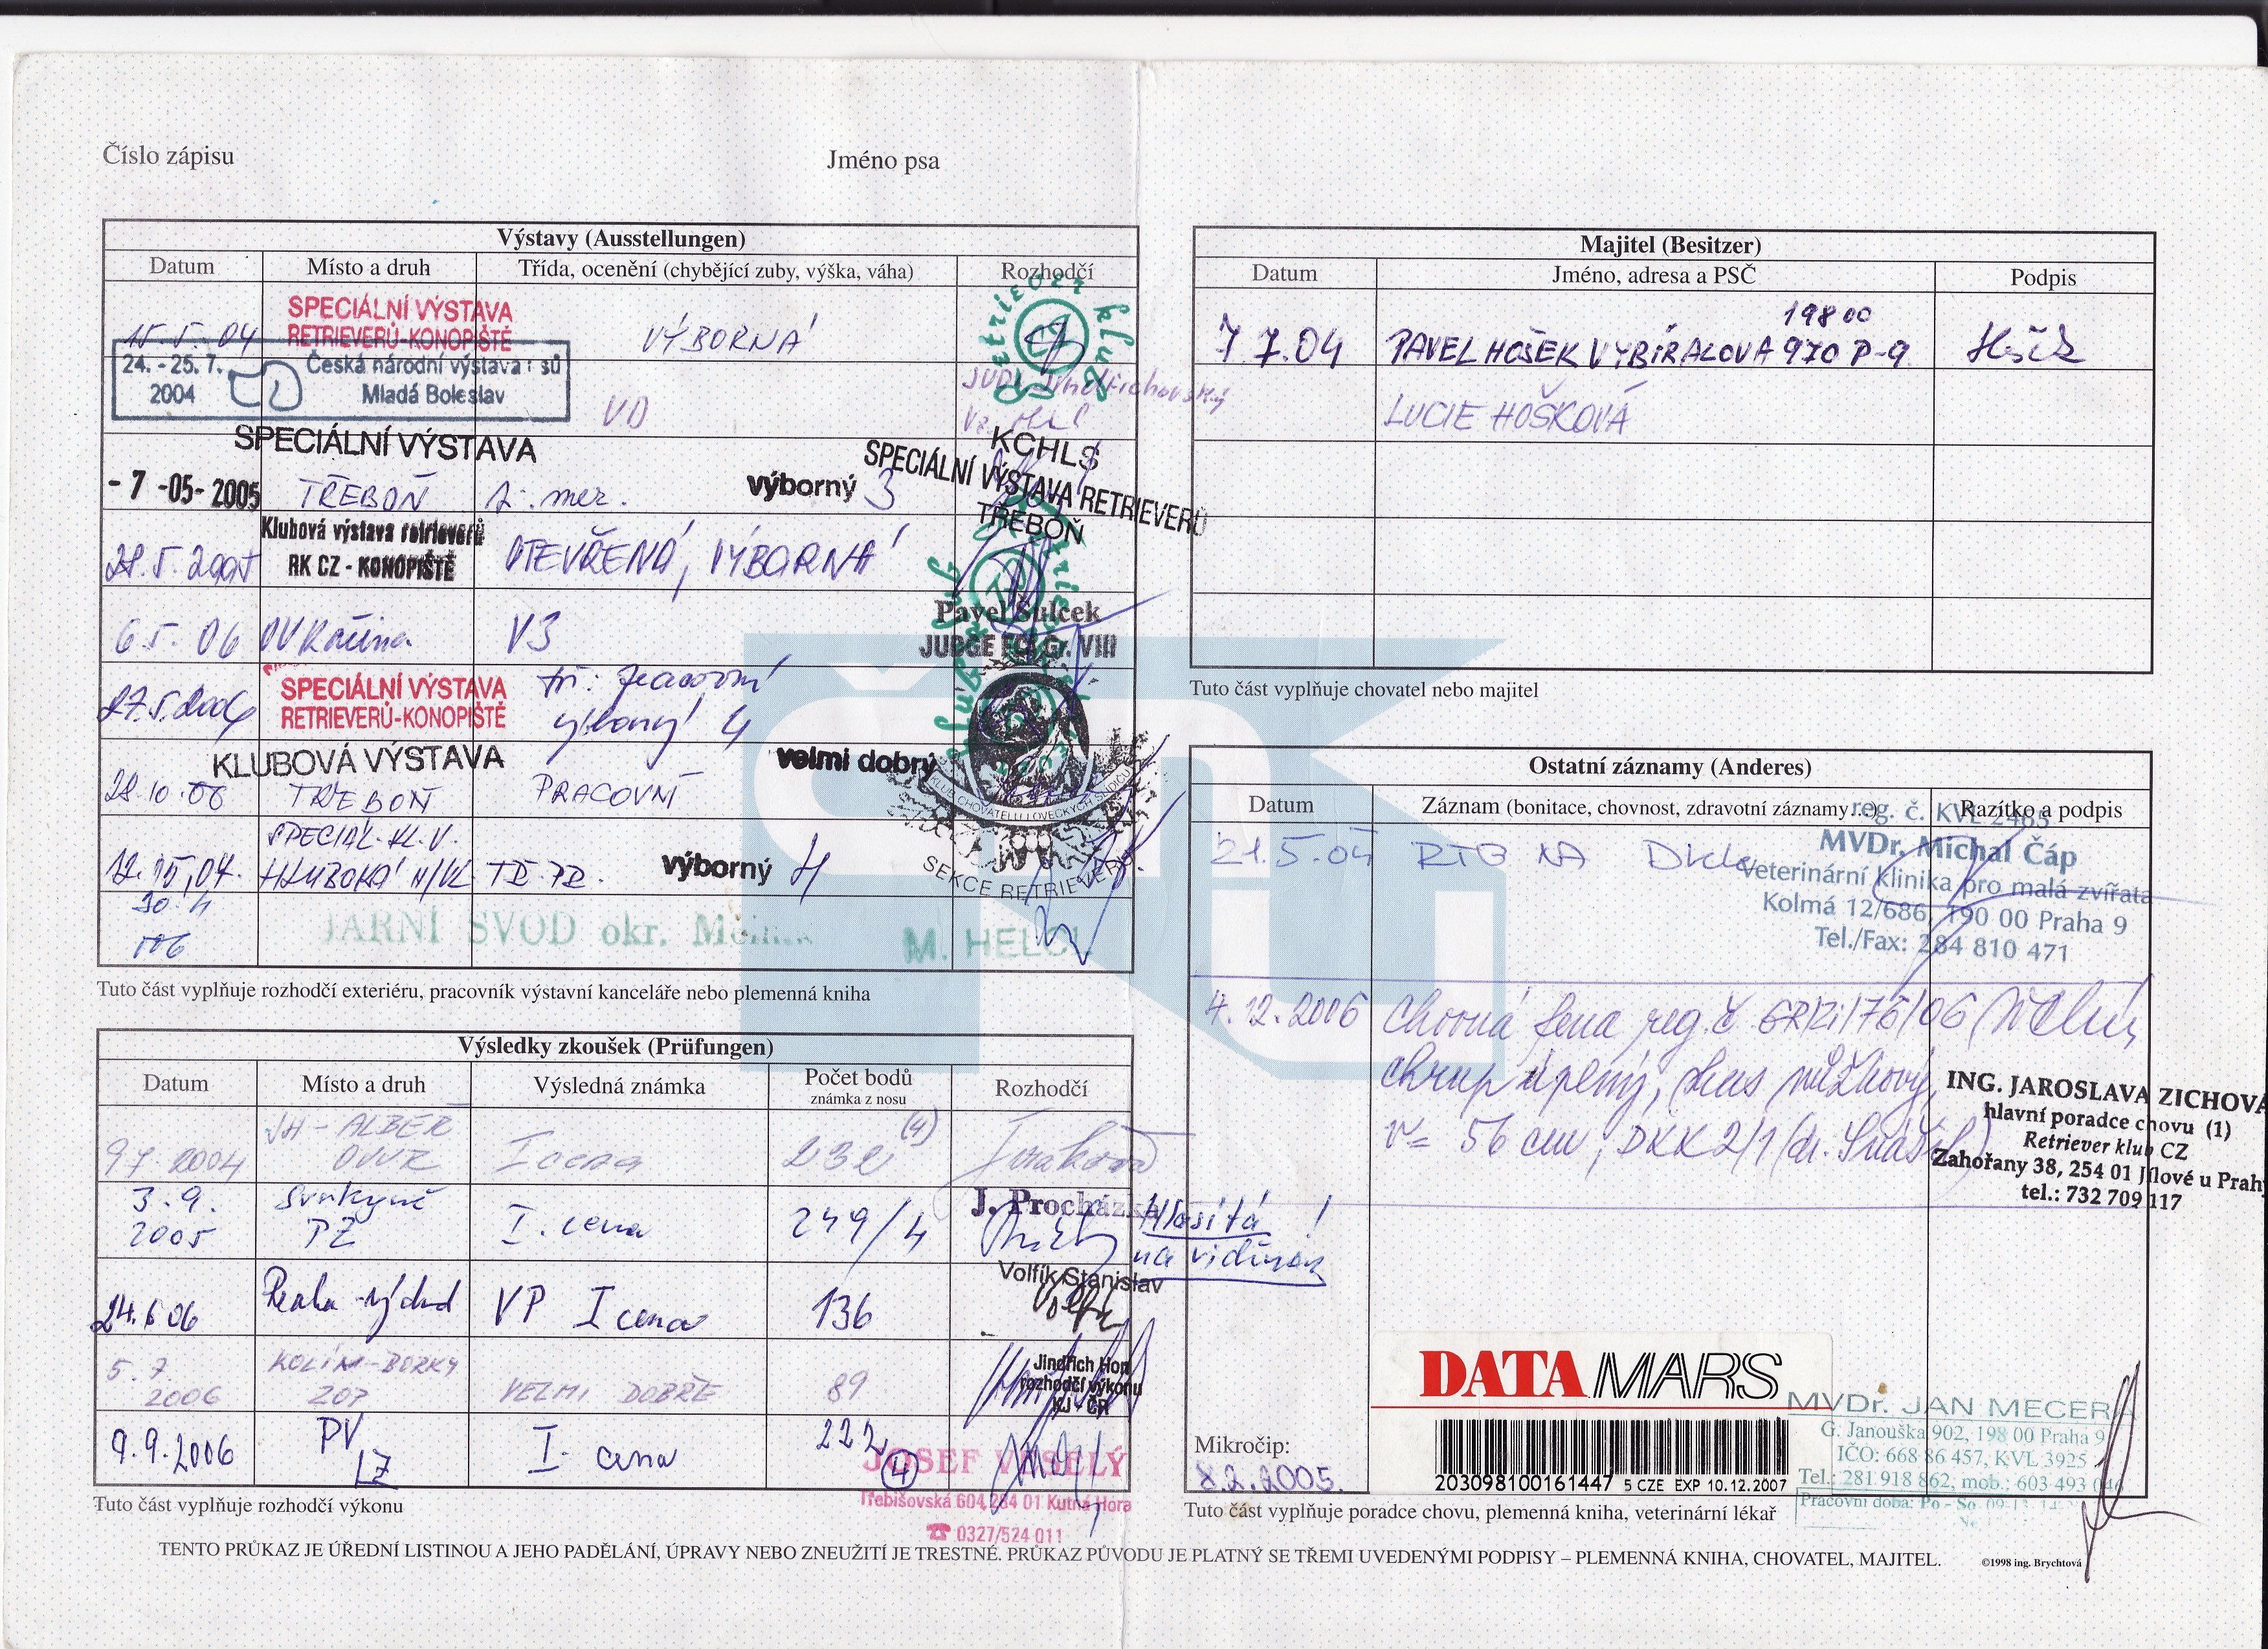 Číslo zápisu
Jméno psa
Výstavy (Ausstellungen)
Datum Místo a druh Třída, ocenění (chybějící zuby, výška, váha) Rozhodčí
SPECIÁLNÍ VÝSTAVA
RETRIEVERŮ-KONOPIŠTĚ
15.5.04 VÝBORNÁ
Retriever klub
24. - 25. 7. 2004
Česká národní výstava psů
Mladá Boleslav
VD
SPECIÁLNÍ VÝSTAVA
- 7 -05- 2005 TŘEBOŇ výborný 3
KCHLS
SPECIÁLNÍ VÝSTAVA RETRIEVERŮ
TŘEBOŇ
Klubová výstava retrieverů
RK CZ - KONOPIŠTĚ
28.5.2005 OTEVŘENÁ, VÝBORNÁ
Pavel Šulcek
JUDGE FCI Gr. VIII
6.5.06 V3
SPECIÁLNÍ VÝSTAVA
RETRIEVERŮ-KONOPIŠTĚ
27.5.2006 tř: pracovní
výborný 4
KLUBOVÁ VÝSTAVA
28.10.06 TŘEBOŇ PRACOVNÍ velmi dobrý
KLUB CHOVATELŮ LOVECKÝCH SLÍDIČŮ
SEKCE RETRIEVERŮ
SPECIÁL. KL. V.
HLUBOKÁ N/VL. výborný 4
30.4
06
JARNÍ SVOD okr. Mělník M. HELCL
Tuto část vyplňuje rozhodčí exteriéru, pracovník výstavní kanceláře nebo plemenná kniha
Výsledky zkoušek (Prüfungen)
Datum Místo a druh Výsledná známka Počet bodů
známka z nosu Rozhodčí
9.7.2004 ALBEŘ
OVVR I cena 232 (4)
3.9.
2005 PZ I. cena 249/4 J. Procházka
Hlasitá !
na vidinou
24.6 06 Praha-východ VP I cena 136 Volfík Stanislav
5.7.
2006 KOLÍN-BORKY
ZOP VELMI DOBŘE 89
Jindřich Hon
rozhodčí výkonu
KJ - ČR
9.9.2006 PV
LZ I. cena 222 4
JOSEF VESELÝ
Třebišovská 604, 284 01 Kutná Hora
☎ 0327/524 011
Tuto část vyplňuje rozhodčí výkonu
Majitel (Besitzer)
Datum Jméno, adresa a PSČ Podpis
198 00
7.7.04 PAVEL HOŠEK VYBÍRALOVA 970 P-9 Hošek
LUCIE HOŠKOVÁ
Tuto část vyplňuje chovatel nebo majitel
Ostatní záznamy (Anderes)
Datum Záznam (bonitace, chovnost, zdravotní záznamy...) Razítko a podpis
reg. č. KVL 2465
MVDr. Michal Čáp
Veterinární klinika pro malá zvířata
Kolmá 12/686, 190 00 Praha 9
Tel./Fax: 284 810 471
21.5.05 RTG NA DKK
4.12.2006 Chovná fena reg. č.
chrup úplný, skus nůžkový,
v = 56 cm, DKK 2/1
ING. JAROSLAVA ZICHOVÁ
hlavní poradce chovu (1)
Retriever klub CZ
Zahořany 38, 254 01 Jílové u Prahy
tel.: 732 709 117
DATAMARS
203098100161447 5 CZE EXP 10.12.2007
Mikročip:
8.2.2005
MVDr. JAN MECERA
G. Janouška 902, 198 00 Praha 9
IČO: 668 86 457, KVL 3925
Tel.: 281 918 862, mob.: 603 493 046
Pracovní doba: Po - So
Tuto část vyplňuje poradce chovu, plemenná kniha, veterinární lékař
TENTO PRŮKAZ JE ÚŘEDNÍ LISTINOU A JEHO PADĚLÁNÍ, ÚPRAVY NEBO ZNEUŽITÍ JE TRESTNÉ. PRŮKAZ PŮVODU JE PLATNÝ SE TŘEMI UVEDENÝMI PODPISY – PLEMENNÁ KNIHA, CHOVATEL, MAJITEL.
©1998 ing. Brychtová